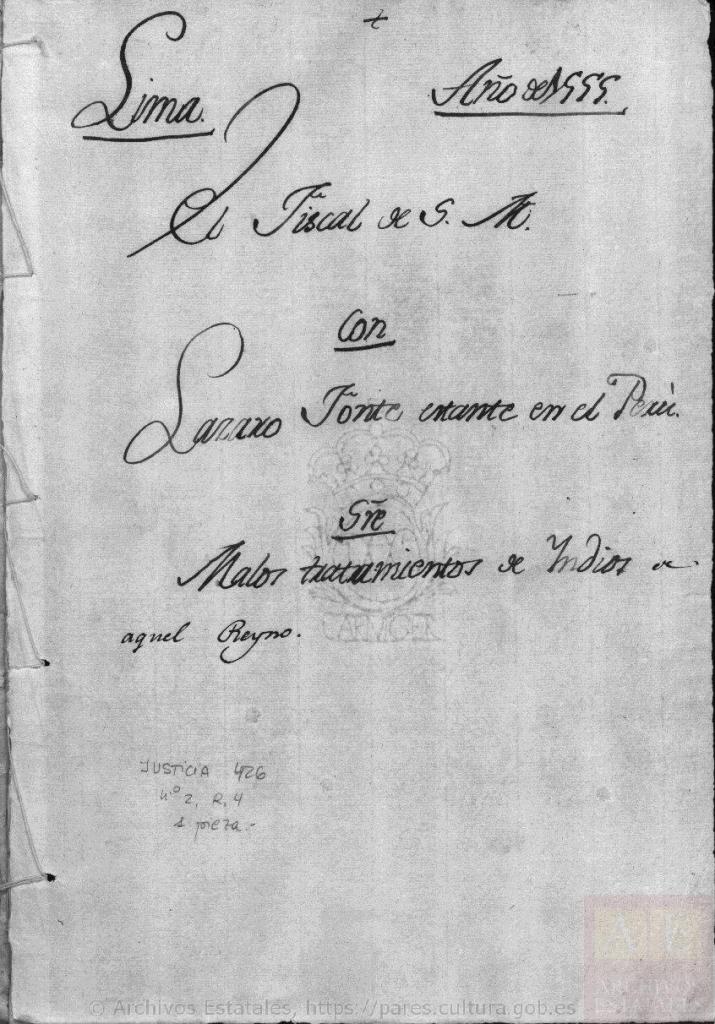 +
Lima. Año de 1555.
El Fiscal de S. M.
Con
Lazaro Fonte estante en el Perù.
Sre
Malos tratamientos de Indios de
aquel Reyno.
JUSTICIA 426
nº 2, R. 4
1 pieza.-
AE
ARCHIVOS
ESTATALES
© Archivos Estatales, https://pares.cultura.gob.es